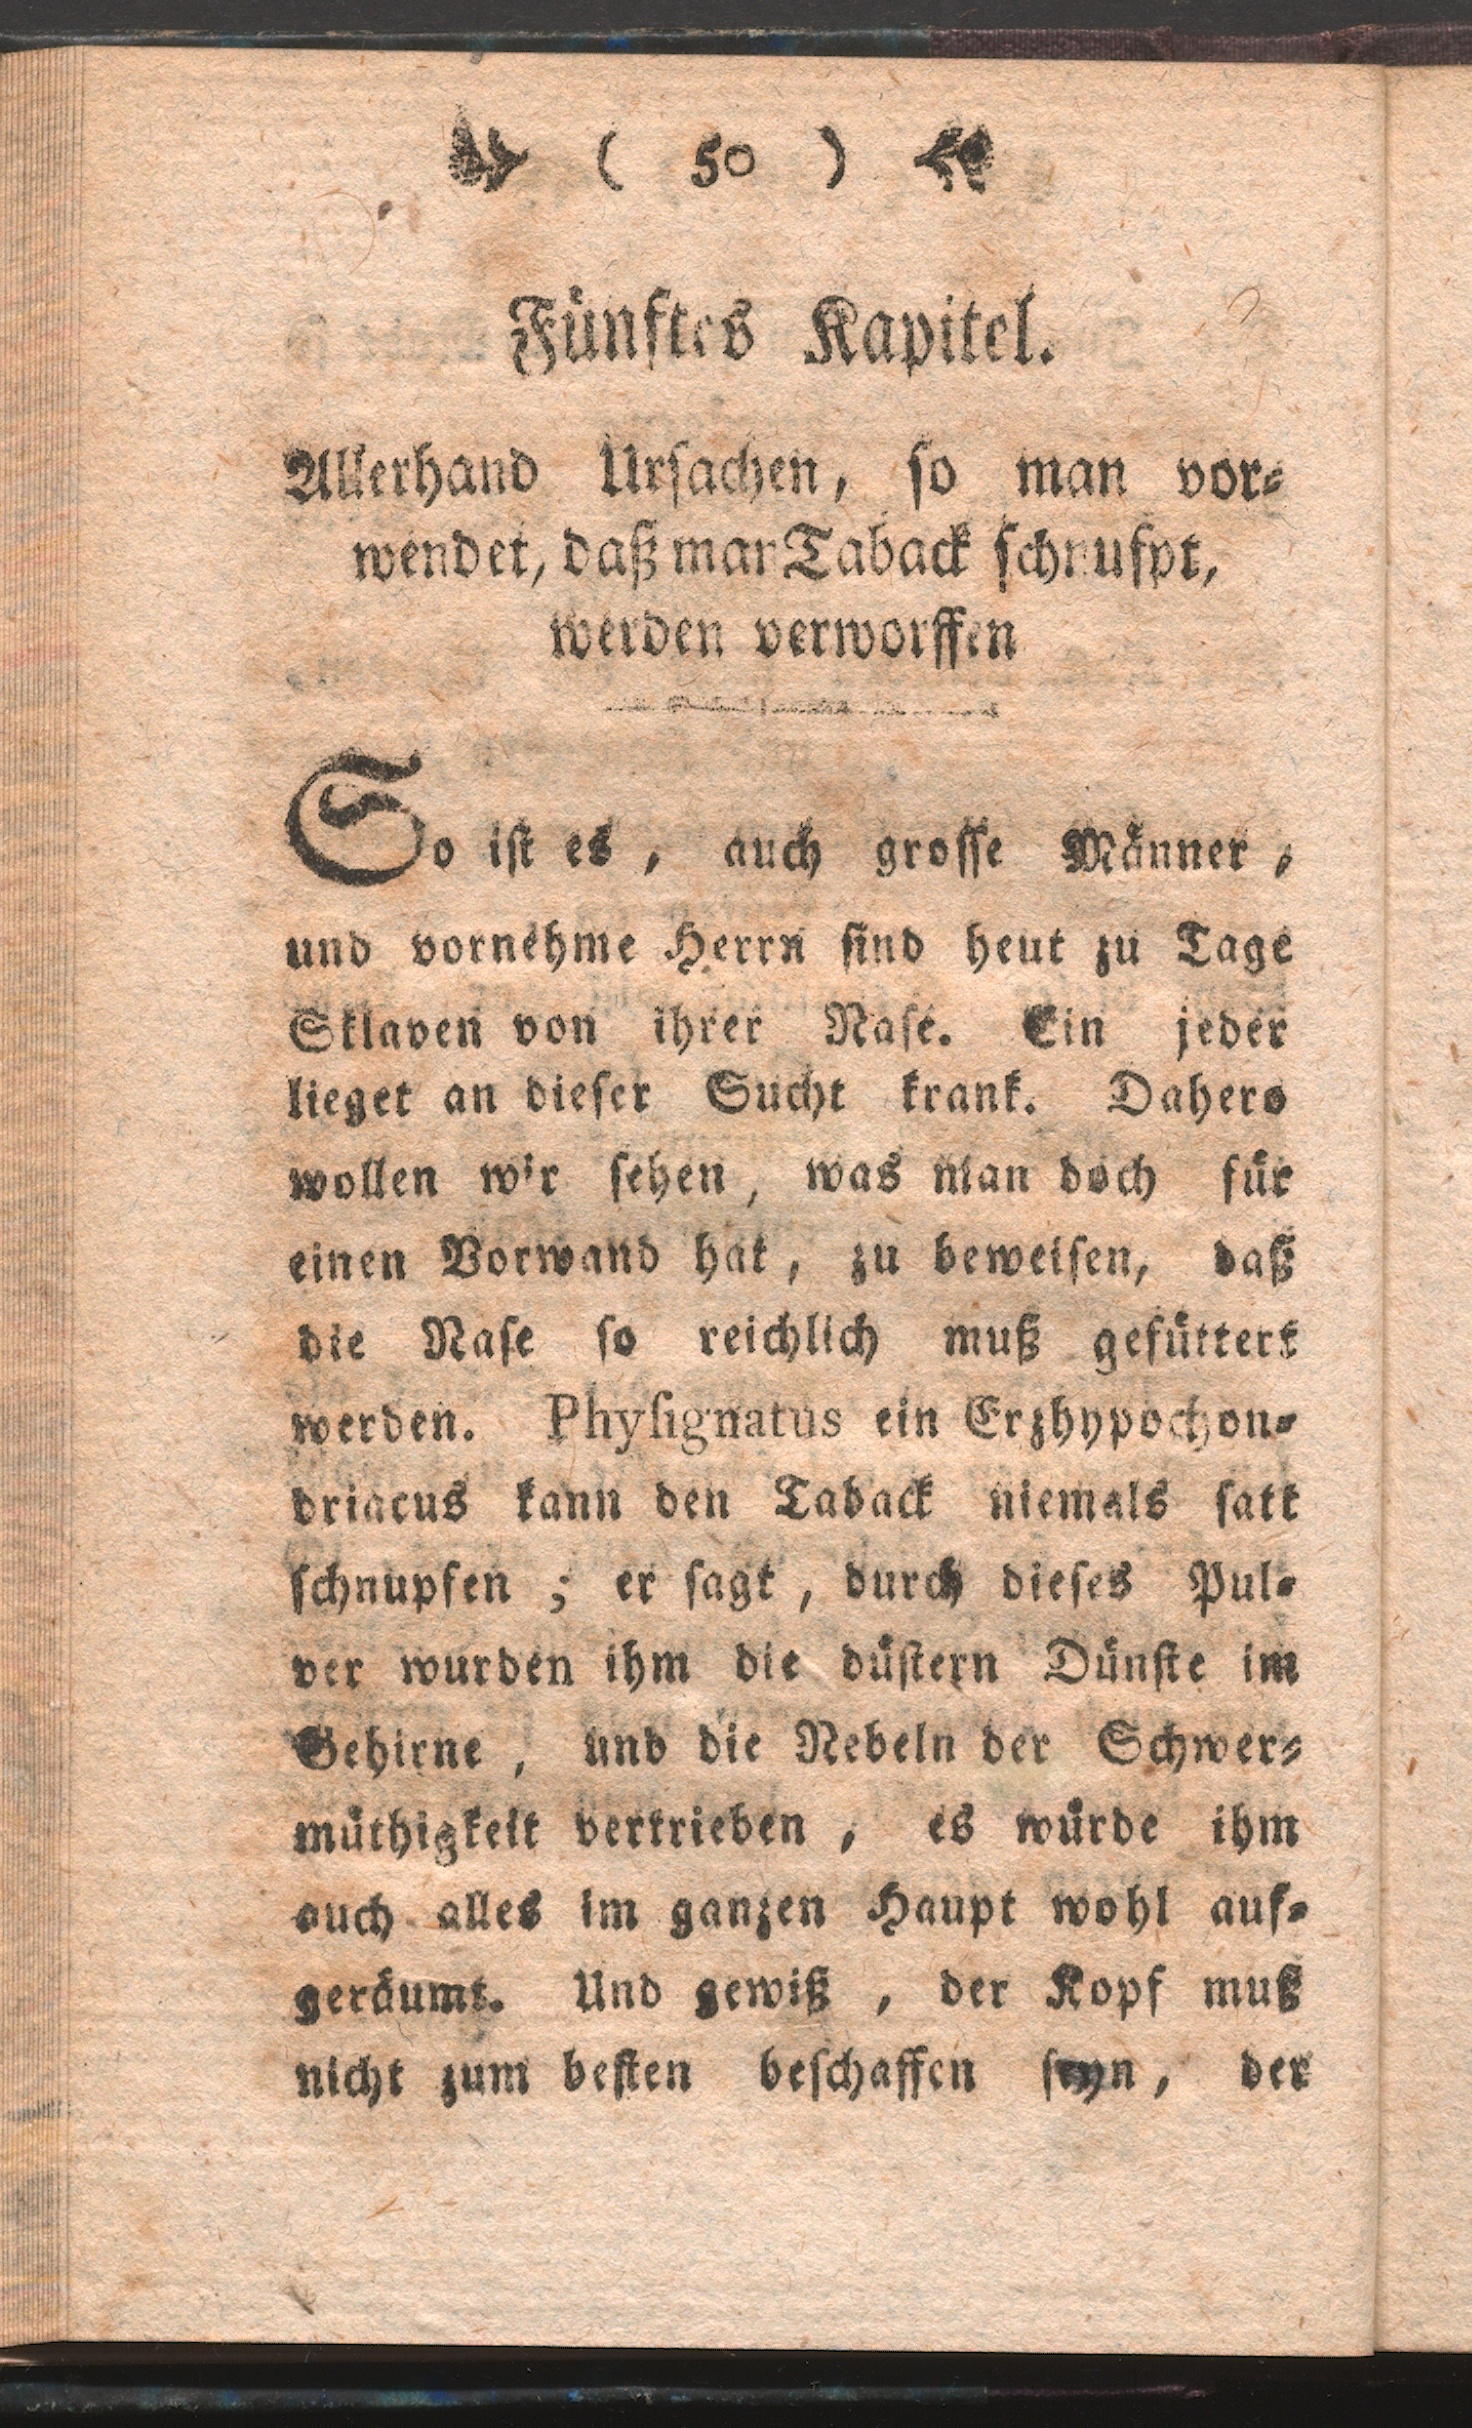 ( 50 )
Fünftes Kapitel.
Allerhand Ursachen, so man vor-
wendet, daß man Taback schnufpt,
werden verworffen
So ist es, auch grosse Männer,
und vornehme Herrn sind heut zu Tage
Sklaven von ihrer Nase. Ein jeder
lieget an dieser Sucht krank. Dahero
wollen wir sehen, was man doch für
einen Vorwand hat, zu beweisen, daß
die Nase so reichlich muß gefüttert
werden. Physignatus ein Erzhypochon-
driacus kann den Taback niemals satt
schnupfen; er sagt, durch dieses Pul-
ver wurden ihm die düstern Dünste im
Gehirne, und die Nebeln der Schwer-
müthigkeit vertrieben, es würde ihm
auch alles im ganzen Haupt wohl auf-
geräumt. Und gewiß, der Kopf muß
nicht zum besten beschaffen seyn, der